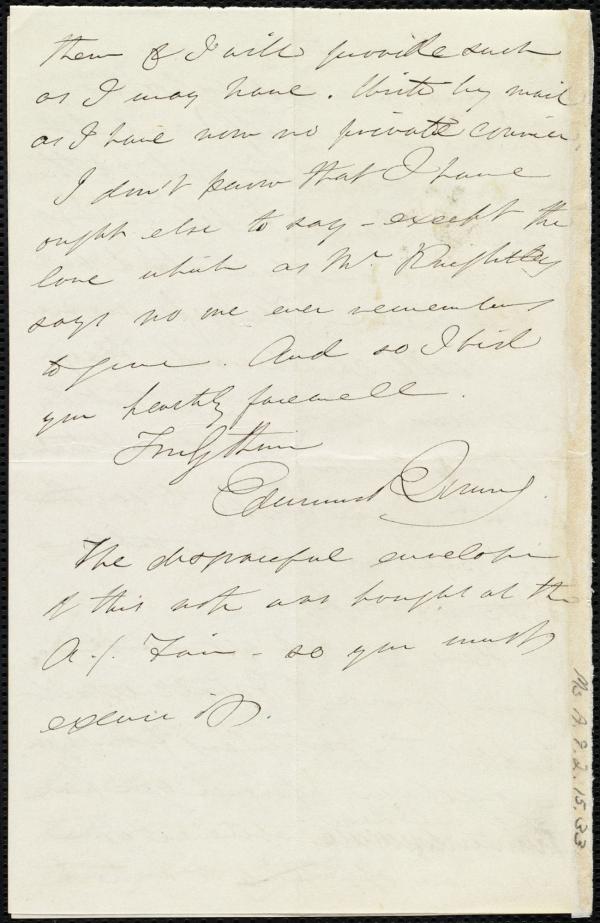 them & I will provide such
as I may have. Write by mail
as I have now no private courier
I don't know that I have
ought else to say - except the
love which as Mr Knightley
says no one ever remembers
to give. And so I bid
you heartily farewell.
Truly thine
Edmund Quincy.
The disgraceful envelope
of this note was bought at the
A./. Fair - so you must
excuse it.
Ms A.9.2.15.33